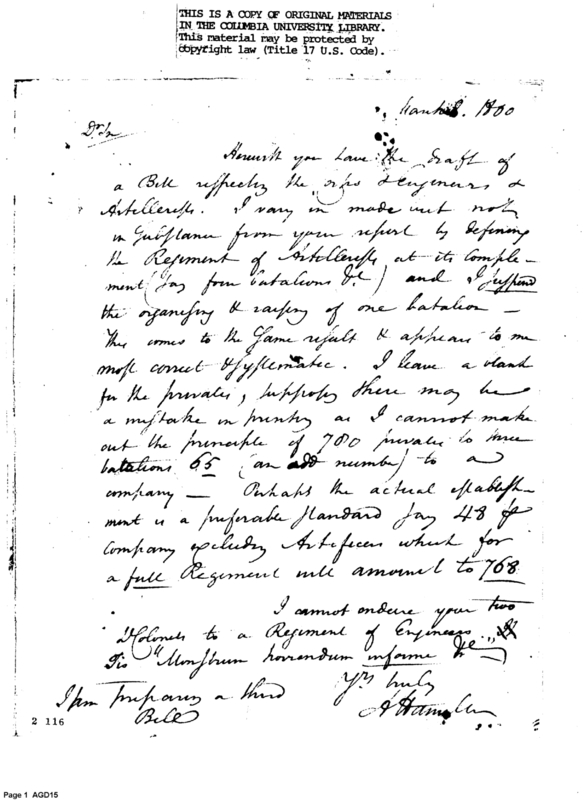 THIS IS A COPY OF ORIGINAL MATERIALS
IN THE COLUMBIA UNIVERSITY LIBRARY.
This material may be protected by
copyright law (Title 17 U.S. Code).
1800
Dr Sr
Herewith you have the draft of
a Bill respecting the Engineers &
Artillerists. I vary in mode but not
in Substance from your report by defining
the Regiment of Artillerists at its comple-
ment (say four batalions &c) and I suspend
the organising & raising of one batalion —
This comes to the same result & appears to me
most correct & systematic. I leave a blank
for the privates, supposing there may be
a mistake in printing as I cannot make
out the principle of 780 privates to three
batalions 65 (an odd number) to a
company — Perhaps the actual establish-
ment is a preferable standard say 48 pr
company excluding Artificers which for
a full Regiment will amount to 768
I cannot endure your two
Colonels to a Regiment of Engineers
Tis "Monstrum horrendum informe &c —
Yrs truly
I am preparing a third
Bill
A Hamilton
2 116
Page 1 AGD15